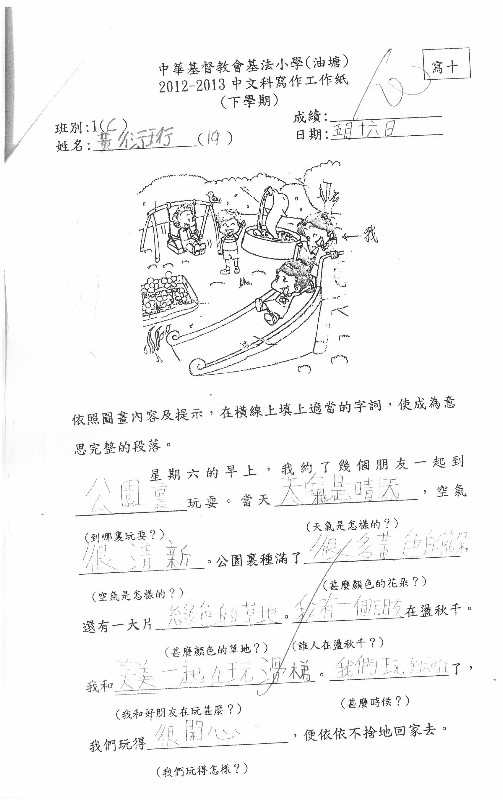 中華基督教會基法小學(油塘)
2012-2013 中文科寫作工作紙
(下學期)
寫十
班別:1(C)
成績:
姓名: (19)
日期: 五月十六日
我
依照圖畫內容及提示，在橫線上填上適當的字詞，使成為意
思完整的段落。
星期六的早上，我約了幾個朋友一起到
公園裏玩耍。當天天氣是晴天，空氣
(到哪裏玩耍?) (天氣是怎樣的?)
很清新。公園裏種滿了很多黃色的
(空氣是怎樣的?) (甚麼顏色的花朵?)
還有一大片綠色的草地。我有一個朋友在盪秋千。
(甚麼顏色的草地?) (誰人在盪秋千?)
我和美美一起在玩滑梯。我們玩了，
(我和好朋友在玩甚麼?) (甚麼時候?)
我們玩得很開心，便依依不捨地回家去。
(我們玩得怎樣?)